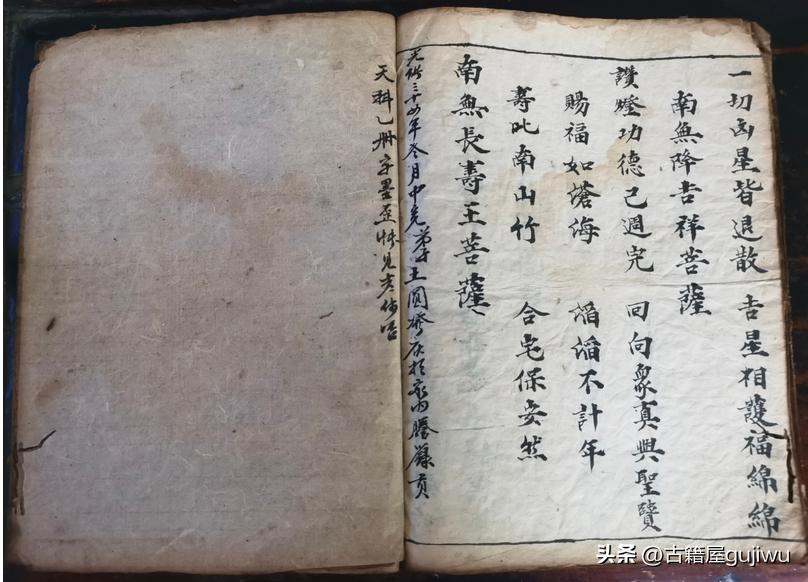 一切凶星皆退散 吉星相護福綿綿
南無降吉祥菩薩
讚燈功德已週完 回向眾真與聖賢
賜福如滄海 滔滔不計年
壽比南山竹 合宅保安然
南無長壽王菩薩
光緒三十四年冬月中完 弟子王圓 於家內謄錄
天科乚册字墨歪 見
头条 @古籍屋gujiwu